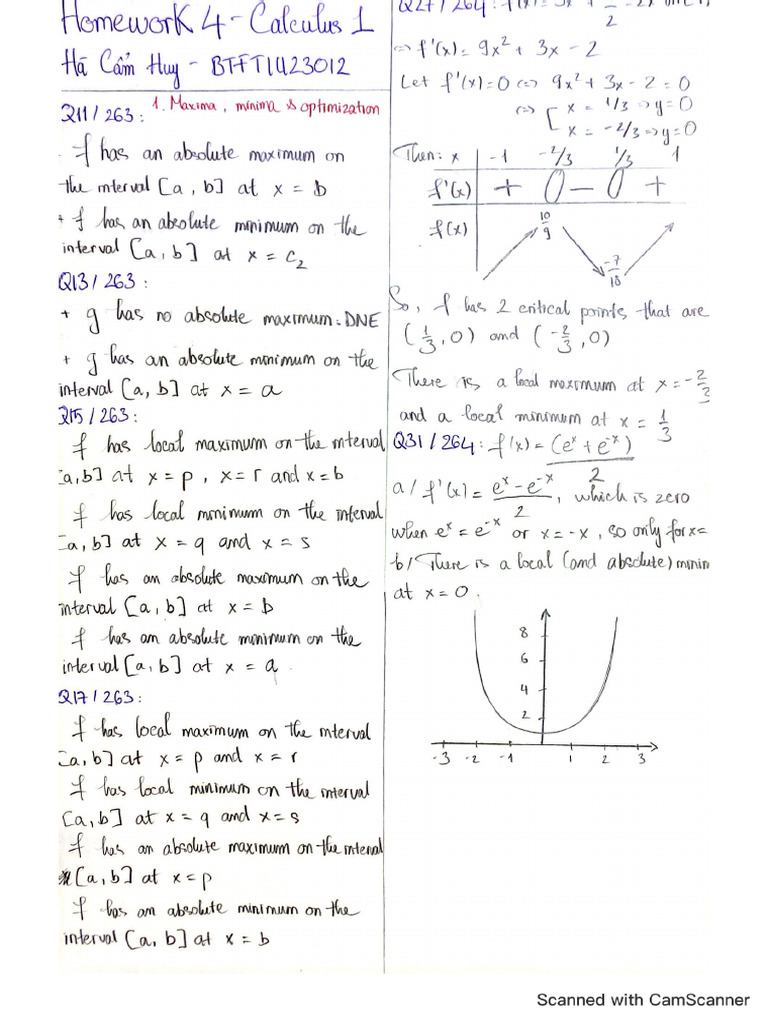 Homework 4 - Calculus 1
Hà Cẩm Huy - BTFTIU23012
Q11/263:
1. Maxima, minima & optimization
. f has an absolute maximum on
the interval [a, b] at x = b
+ f has an absolute minimum on the
interval [a, b] at x = c₂
Q13/263:
+ g has no absolute maximum: DNE
+ g has an absolute minimum on the
interval [a, b] at x = a
Q15/263:
f has local maximum on the interval
[a, b] at x = p, x = r and x = b
f has local minimum on the interval
[a, b] at x = q and x = s
f has an absolute maximum on the
interval [a, b] at x = b
f has an absolute minimum on the
interval [a, b] at x = q.
Q17/263:
f has local maximum on the interval
[a, b] at x = p and x = r
f has local minimum on the interval
[a, b] at x = q and x = s
f has an absolute maximum on the interval
[a, b] at x = p
f has an absolute minimum on the
interval [a, b] at x = b
Q27/264:
2
⇔ f'(x) = 9x² + 3x - 2
Let f'(x) = 0 ⇔ 9x² + 3x - 2 = 0
⇔ [ x = 1/3 ⇒ y = 0
x = -2/3 ⇒ y = 0
Then: x -1 -2/3 1/3 1
f'(x) + 0 - 0 +
f(x) 10/9 -7/18
So, f has 2 critical points that are
(1/3, 0) and (-2/3, 0)
There is a local maximum at x = -2/3
and a local minimum at x = 1/3
Q31/264: f(x) = (eˣ + e⁻ˣ)/2
a/ f'(x) = (eˣ - e⁻ˣ)/2, which is zero
when eˣ = e⁻ˣ or x = -x, so only for x =
b/ There is a local (and absolute) minim
at x = 0.
8
6
4
2
-3 -2 -1 1 2 3
Scanned with CamScanner